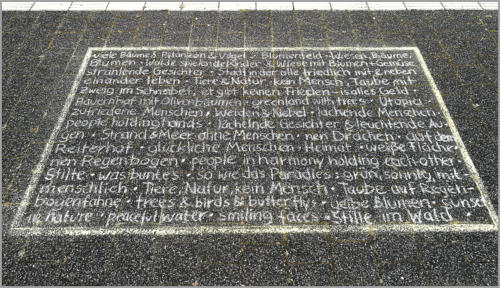 viele Bäume & Pflanzen & Vögel • Blumenfeld • Wiesen, Bäume,
Blumen • Wolde spielende Kinder & Wiese mit Blumen + Gemüse
strahlende Gesichter • Stadt in der alle friedlich mit & neben
einander leben • Tiere & Natur, kein Mensch, Taube mit
Zweig im Schnabel, es gibt keinen Frieden – is alles Geld •
Bauernhof mit Olivenbäumen • greenland with trees • Utopie •
zufriedene Menschen • Weiden & Nebel • lachende Menschen
people holding hands • lächelnde Gesichter & leuchtende Au-
gen • Strand & Meer ohne Menschen • nen Drachen auf dem
Reiterhof • glückliche Menschen • Heimat • weiße Fläche,
nen Regenbogen • people in harmony holding each other
Stille • was buntes • so wie das Paradies • grün, sonnig, mit-
menschlich • Tiere, Natur, kein Mensch • Taube auf Regen-
bogenfahne • trees & birds & butterflys • gelbe Blumen • sunset
in nature • peaceful water • smiling faces • Stille im Wald •